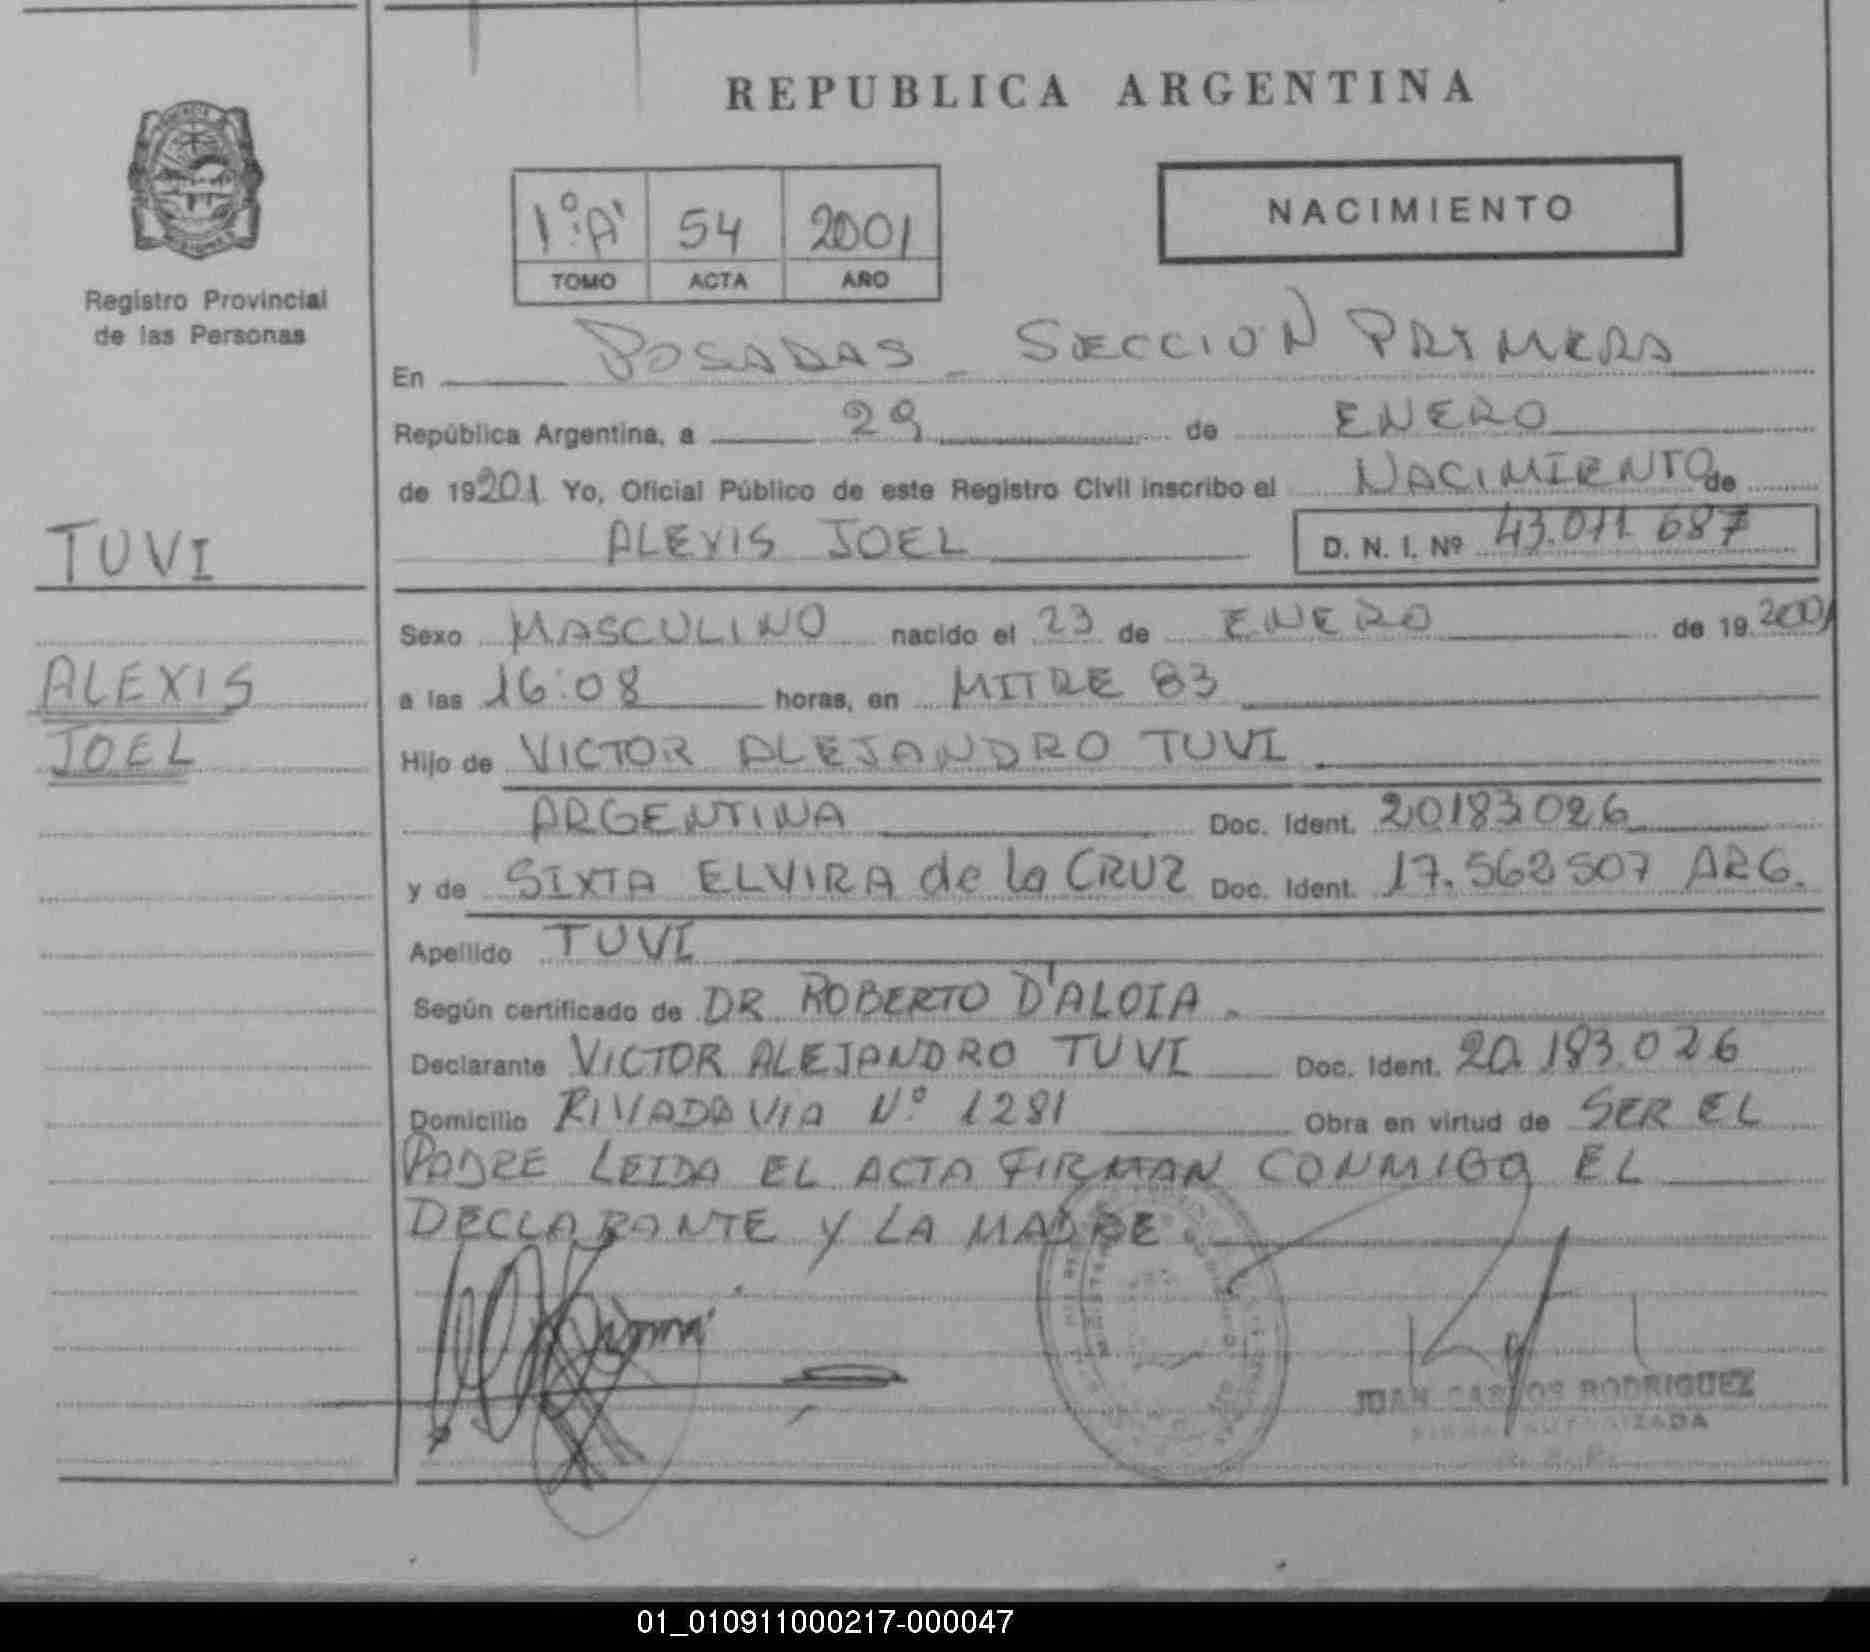 REPUBLICA ARGENTINA
Registro Provincial
de las Personas
1º "A" 54 2001
TOMO ACTA AÑO
NACIMIENTO
En POSADAS - SECCION PRIMERA
República Argentina, a 29 de ENERO
de 19201 Yo, Oficial Público de este Registro Civil inscribo el NACIMIENTO de
ALEXIS JOEL D. N. I. Nº 43.011.687
TUVI
ALEXIS
JOEL
Sexo MASCULINO nacido el 23 de ENERO de 19 2001
a las 16:08 horas, en MITRE 83
Hijo de VICTOR ALEJANDRO TUVI
ARGENTINA Doc. Ident. 20183026
y de SIXTA ELVIRA de la CRUZ Doc. Ident. 17.562507 ARG.
Apellido TUVI
Según certificado de DR ROBERTO D'ALOIA.
Declarante VICTOR ALEJANDRO TUVI Doc. Ident. 20.183.026
Domicilio RIVADAVIA Nº 1281 Obra en virtud de SER EL
PADRE LEIDA EL ACTA FIRMAN CONMIGO EL
DECLARANTE Y LA MADRE
JUAN CARLOS RODRIGUEZ
FIRMA AUTORIZADA
01_010911000217-000047